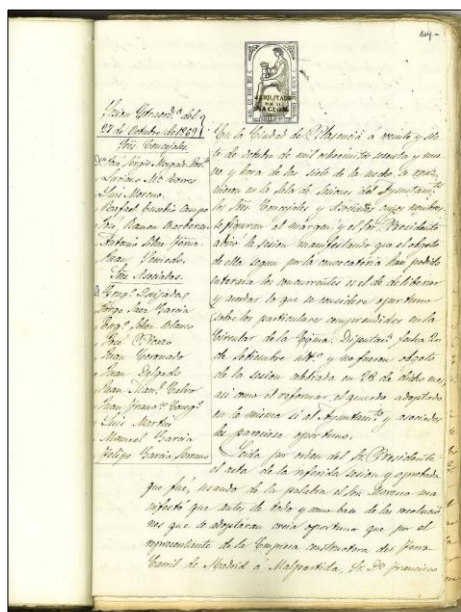 Sesion Extraord.ª del
27 de Octubre de 1869
Sres Concejales
Luciano Mª Torres
Luis Moreno
Rafael Eusebio Campo
José Ramon Barbera
Antonio Silva
Juan
Sres Asociados
D. Greg.º Quijadas
Jorge Saez Garcia
Eug.º Soler Blanco
José Pizarro
Juan Coronado
Juan Delgado
Juan Man.l Calvo
Juan Fran.co
Luis Martin
Manuel Garcia
Felipe Garcia Serrano
HABILITADO
POR LA
NACION
En la Ciudad de Plasencia á veinte y sie
te de octubre de mil ochocientos sesenta y nue
ve y hora de las siete de la noche, se reu
nieron en la Sala de Sesiones del Ayuntam.to
los Sres Concejales y Asociados cuyos nombres
se figuran al margen y el Sor Presidente
abrió la sesion manifestando que el objeto
de ella segun por la convocatoria han podido
enterarse los concurrentes es el de deliberar
y acordar lo que se considere oportuno
sobre los particulares comprendidos en la
Circular de la Diputac.n fecha 20
de Setiembre ult.º y no fueron objeto
de la sesion celebrada en 28 de dicho mes,
asi como el reformar el acuerdo adoptado
en la misma si al Ayuntam.to y asociados
les pareciese oportuno.
Leida por orden del Sr Presidente
el acta de la referida sesion y aprobada
que fué, usando de la palabra el Sor Moreno ma
nifestó que antes de todo y como base de las resolucio
nes que se adoptaran creia oportuno que por el
representante de la Empresa constructora del ferro
Carril de Madrid a Malpartida, Sr Dn Francisco